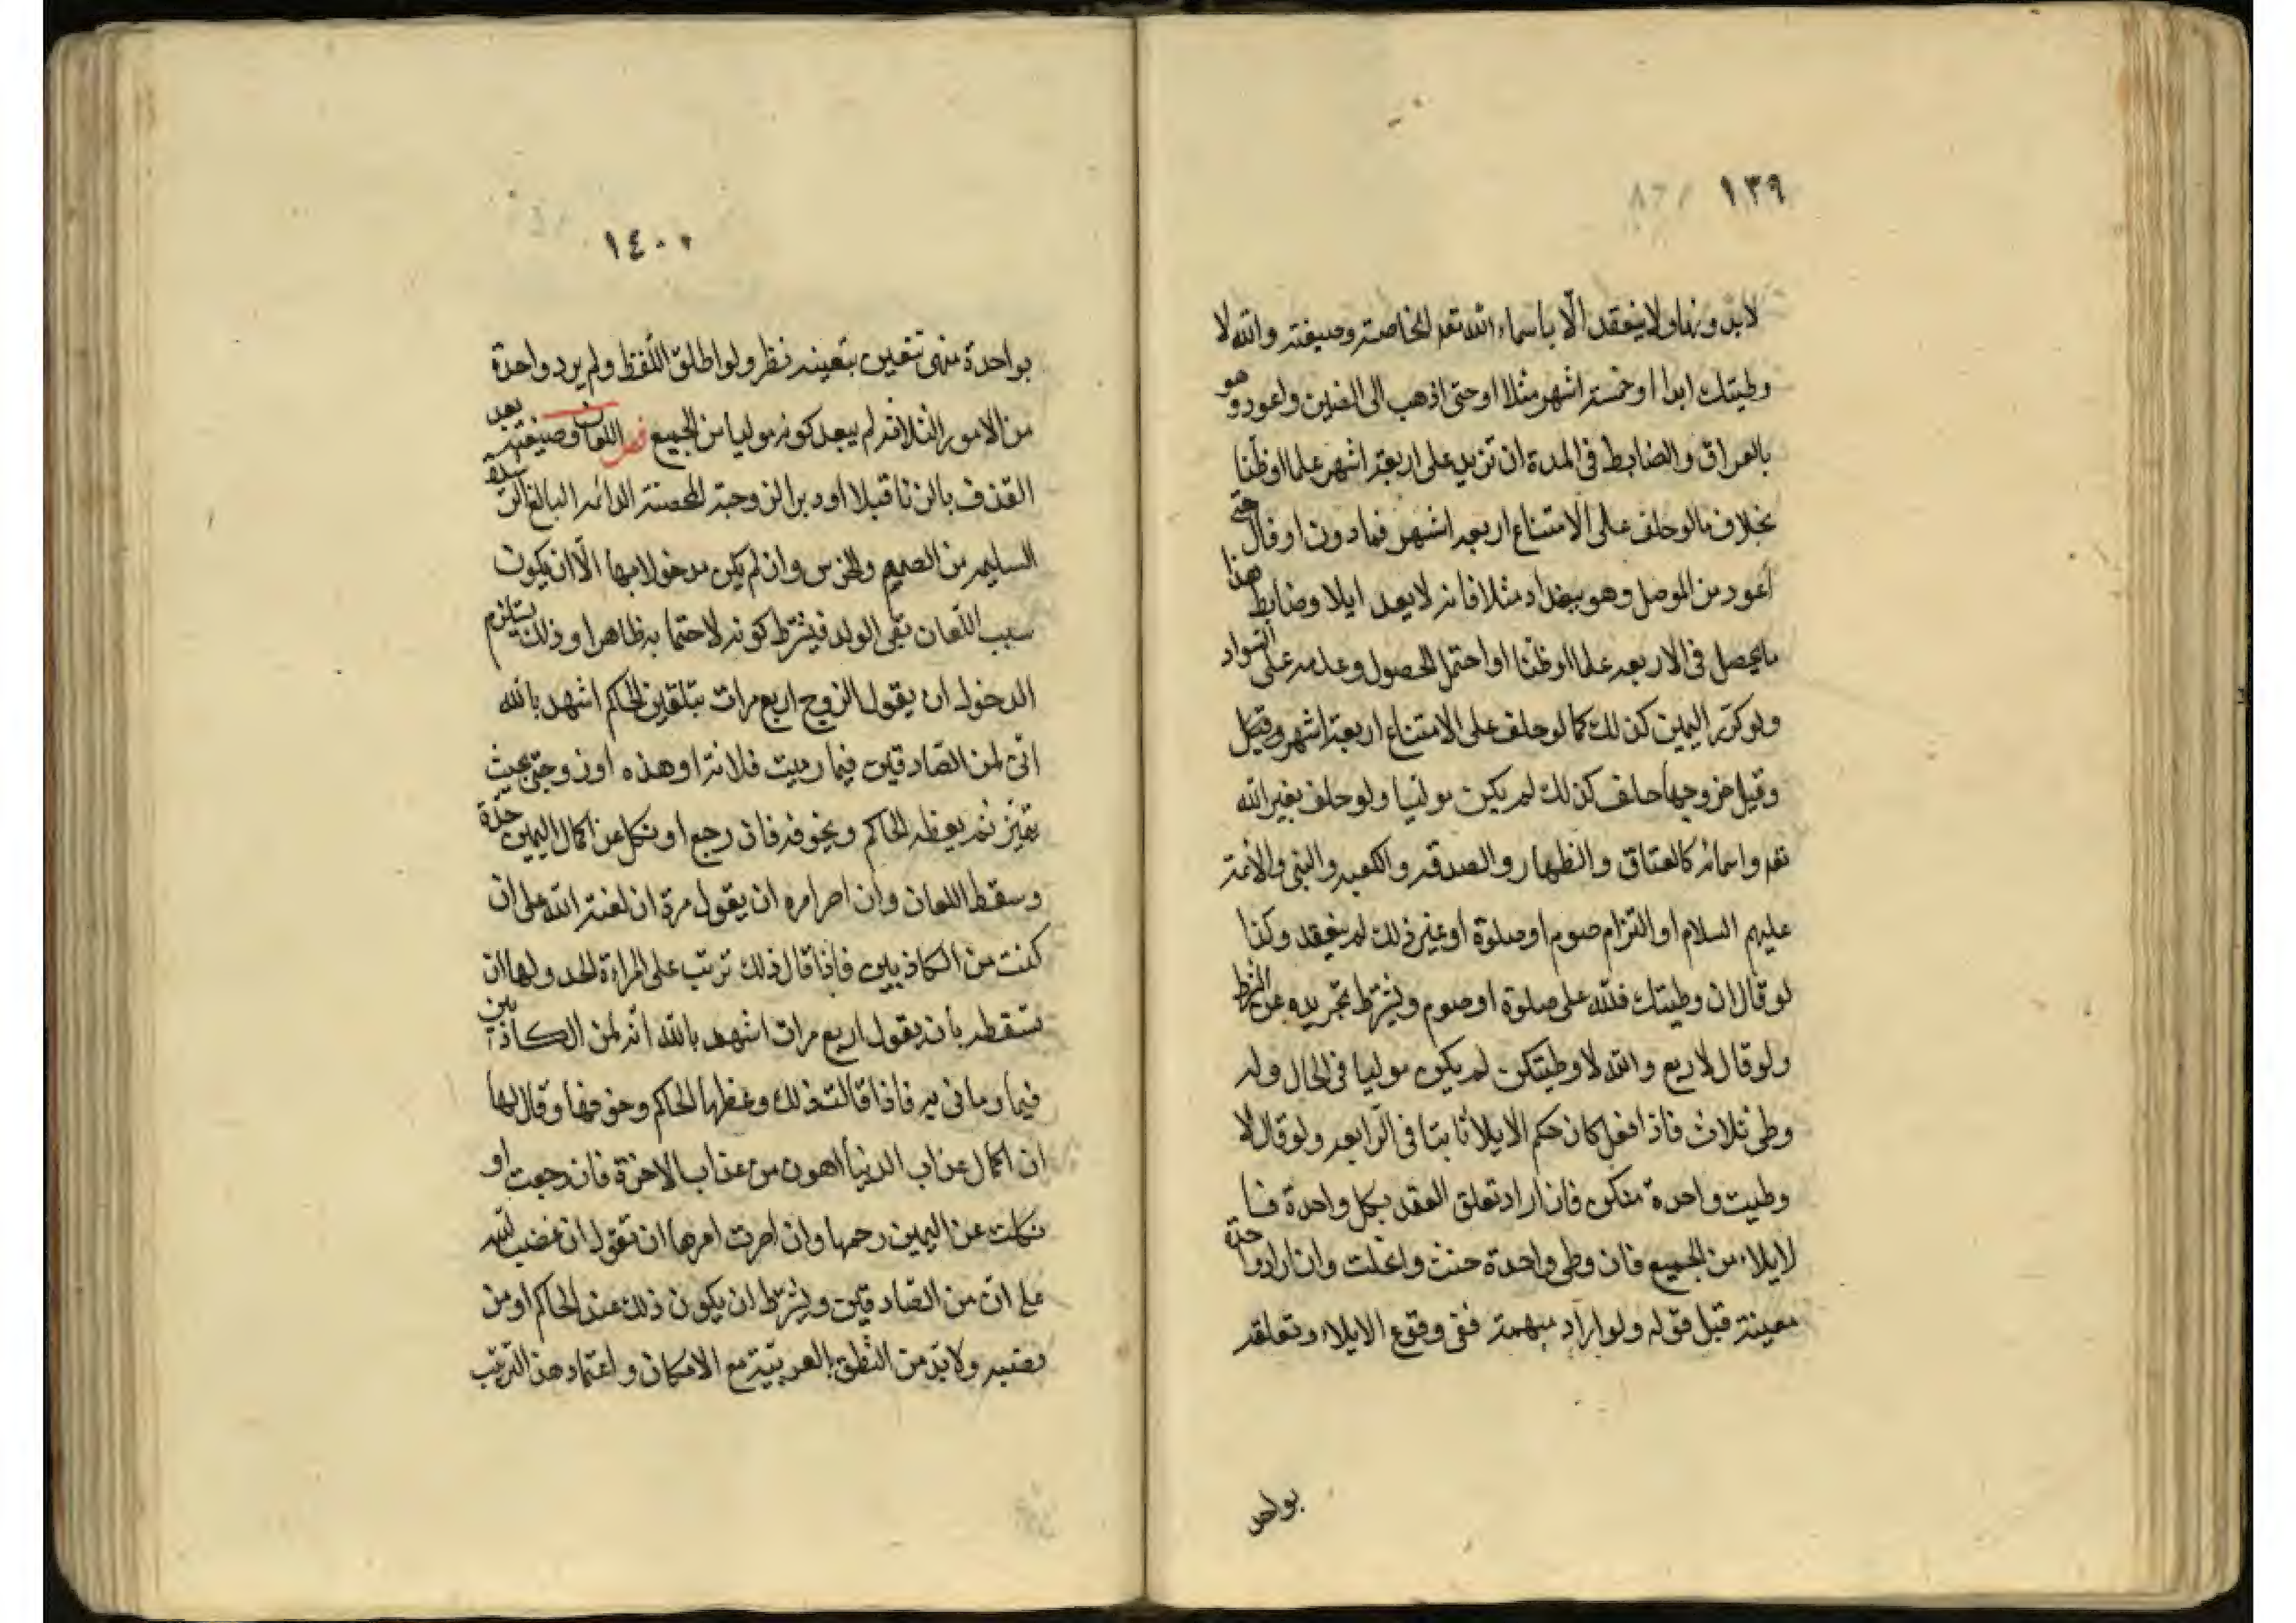 ١٣٩
لا بدونها ولا ينعقد الّا باسماء الله تعه الخاصة وصيغته والله لا
وطيتك ابدا او خمسة اشهر مثلا او حتى اذهب الى الصين واعود وهو
بالعراق والضابط فى المدة ان تزيد على اربعة اشهر علما او ظنا
بخلاف ما لو حلف على الامتناع اربعه اشهر فما دون او قال حتى
اعود من الموصل وهو ببغداد مثلا فانه لا يعد ايلا وضابط هذا
ما يحصل فى الاربعه علما او ظنا او احتمل الحصول وعدمه على السواد
ولو كرّر اليمين كذلك كما لو حلف على الامتناع اربعة اشهر وقيل
وقيل خروجها حلف كذلك لم يكن موليا ولو حلف بغير الله
تعه واسمائه كالعتاق والظهار والصدقه والكعبه والنبى والائمة
عليهم السلام او التزام صوم او صلوة او غير ذلك لم ينعقد وكذا
لو قال ان وطيتك فلله على صلوة او صوم ويشترط تجريده عن الشرط
ولو قال لاربع والله لا وطيتكن لم يكن موليا فى الحال وله
وطى ثلاث فاذا فعل كان حكم الايلا ثابتا فى الرابعه ولو قال لا
وطيت واحدة منكن فان اراد تعلق العقد بكل واحدة فا
لايلاء من الجميع فان وطى واحدة حنث وانحلت وان اراد واحدة
معينة قبل قوله ولو اراد مبهمة ففى وقوع الايلاء وتعلقه
بواحد
١٤٠
بواحدة منهن تتعين بتعينه نظر ولو اطلق اللفظ ولم يرد واحدة
من الامور الثلاثة لم يبعد كونه موليا من الجميع فصل اللعان وصيغته بعد
القذف بالزنا قبلا او دبرا لزوجته المحصنة الدائمه البالغ الرشيدة
السليمه من الصمم والخرس وان لم يكن مدخولا بها الّا ان يكون
سبب اللعان نفى الولد فيشترط كونه لاحقا به ظاهرا وذلك يستلزم
الدخول ان يقول الزوج اربع مرات بتلقين الحاكم اشهد بالله
انى لمن الصادقين فيما رميت فلانة او هذه او زوجتى بحيث
تتميز ثم يعظه الحاكم ويخوفه فان رجع او نكل عن اكمال اليمين حدّه
وسقط اللعان وان اصر امره ان يقول مرة ان لعنة الله على ان
كنت من الكاذبين فاذا قال ذلك ترتب على المراة الحد ولها ان
تسقطه بان يقول اربع مرات اشهد بالله انه لمن الكاذبين
فيما رمانى به فاذا قالت ذلك وعظها الحاكم وخوفها وقال لها
ان اكمال عذاب الدنيا اهون من عذاب الاخرة فان رجعت او
نكلت عن اليمين رجمها وان اصرت امرها ان تقول ان غضب الله
على ان من الصادقين ويشترط ان يكون ذلك عند الحاكم او من
نصبه ولا بد من النطق بالعربيّة مع الامكان واعتماد هذا الترتيب